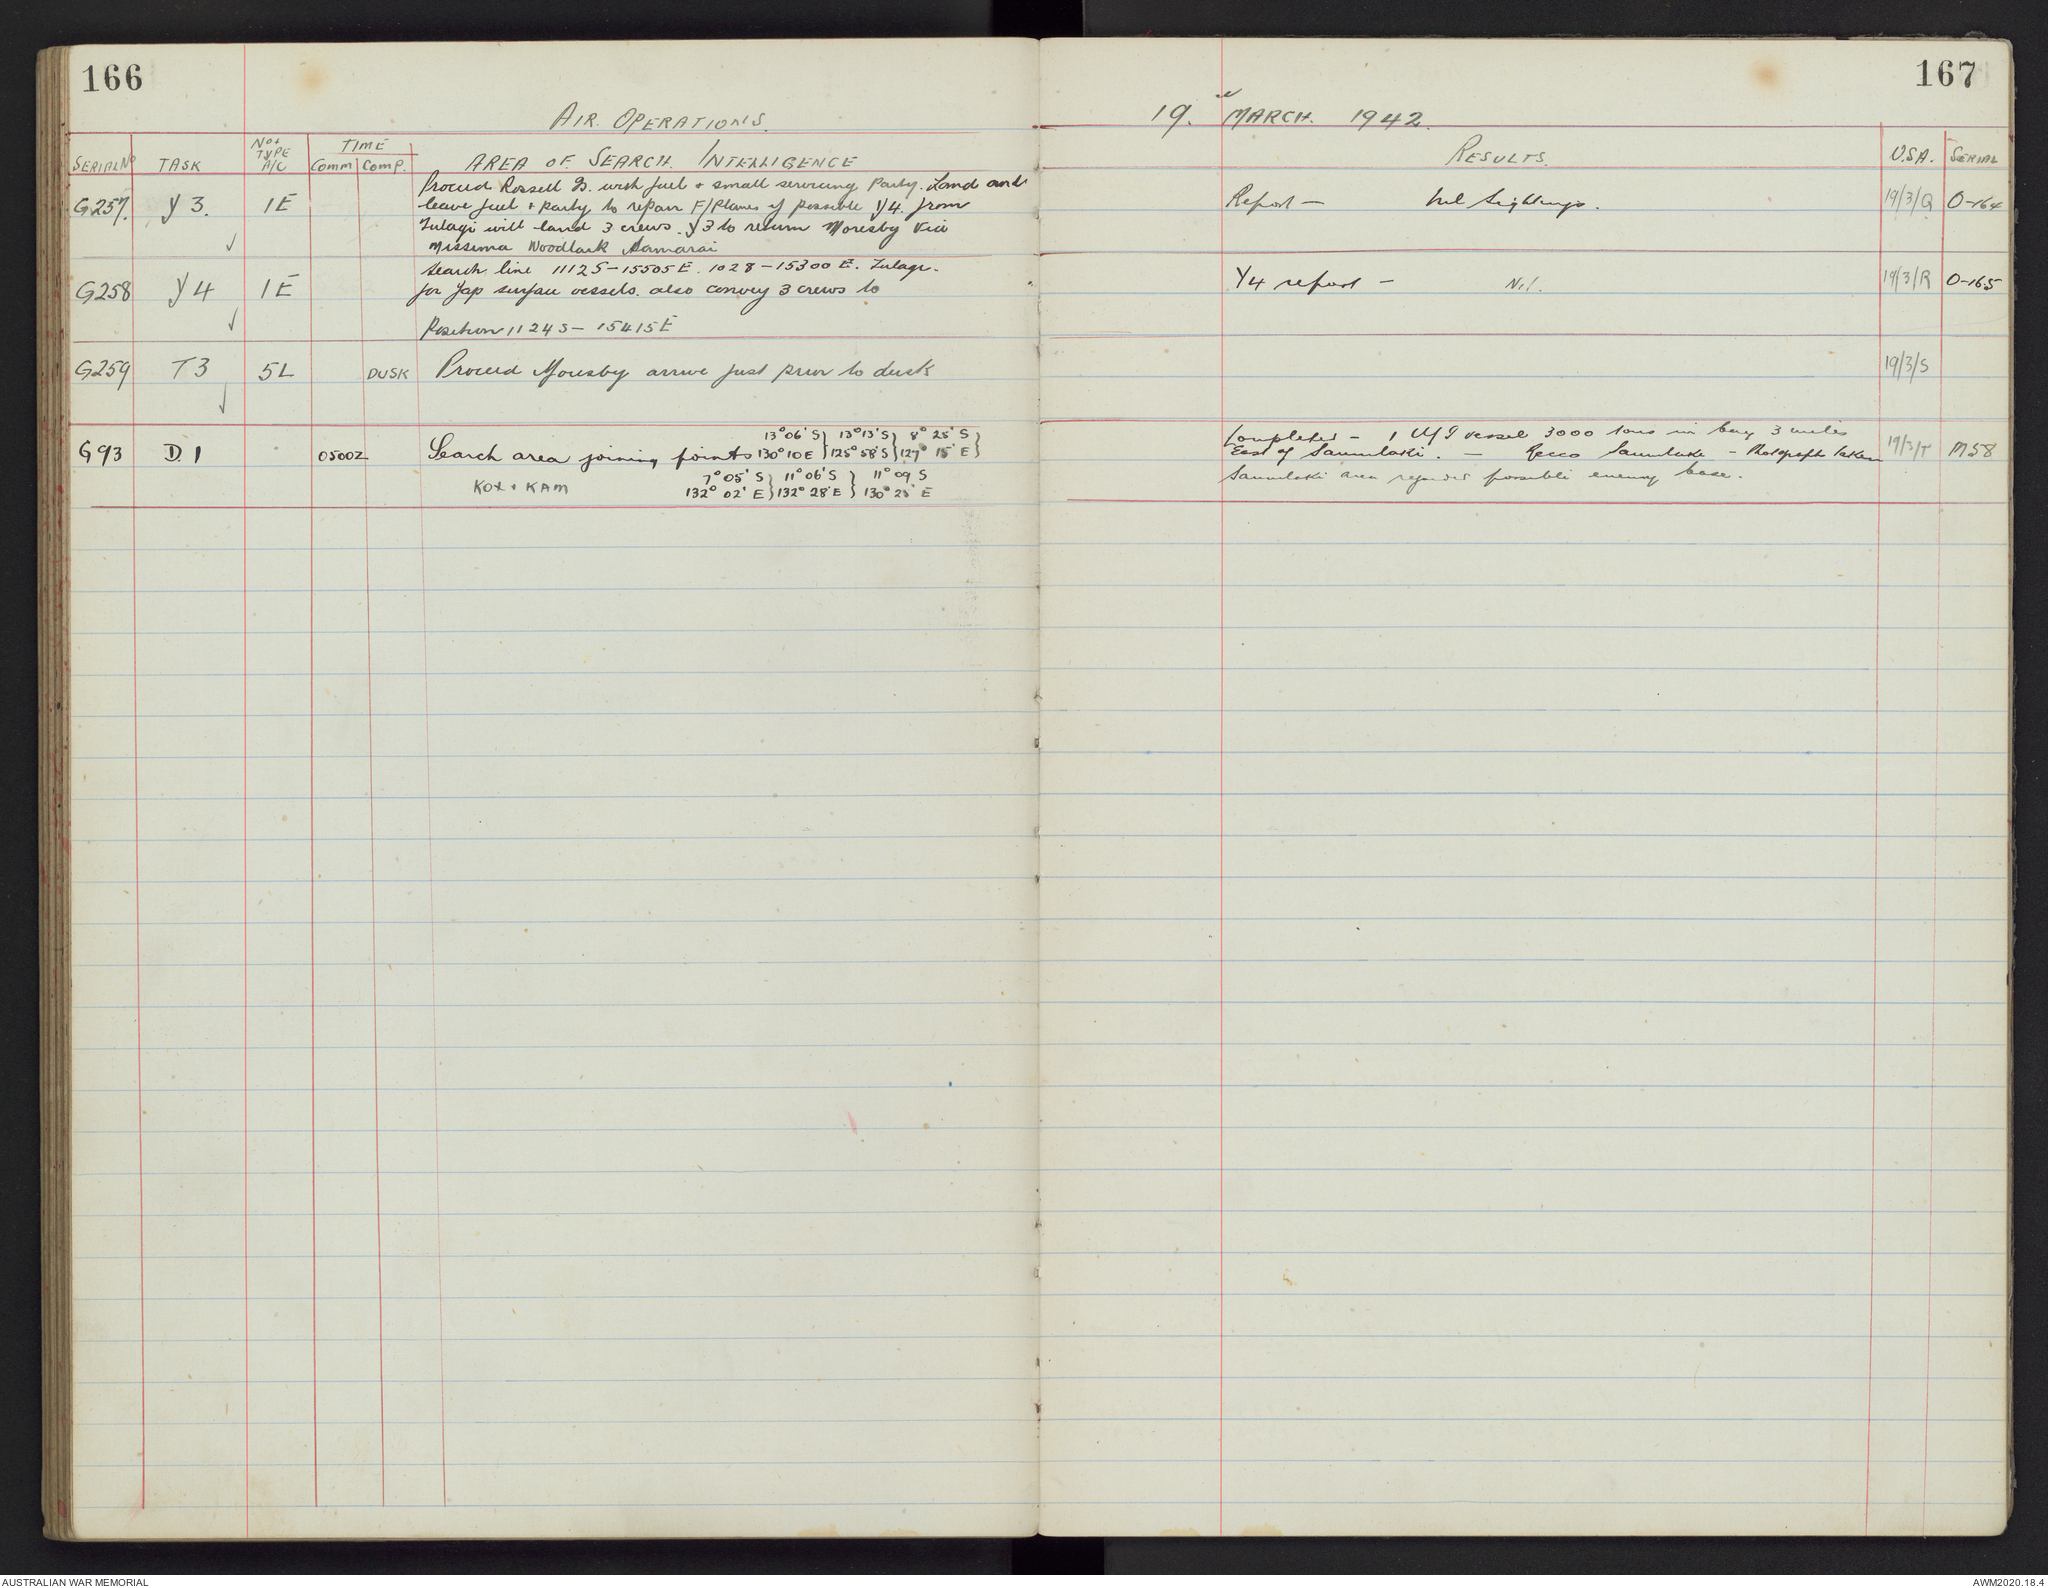 166
AIR OPERATIONS.
SERIAL No TASK No + TYPE A/C TIME Comm Comp. AREA OF SEARCH. INTELLIGENCE
G257. Y3. 1E Proceed Rossell Is. with fuel + small servicing party. Land and
leave fuel + party to repair F/Planes if possible Y4. from
Tulagi will land 3 crews. Y3 to return Moresby via
Missima Woodlark Samarai
G258 Y4 1E Search line 1112S-15505E. 1028-15300E. Tulagi.
for Jap surface vessels. also convey 3 crews to
Position 1124S-15415E
G259 T3 5L DUSK Proceed Moresby arrive just prior to dusk
G93 D.1 0500Z Search area joining points 13°06'S 130°10E } 13°13'S 125°58'S } 8°25'S 127°15'E }
KOX + KAM 7°05'S 132°02'E } 11°06'S 132°28'E } 11°09S 130°25'E
167
19. MARCH. 1942.
RESULTS. U.S.A. SERIAL
Report - Nil Sightings. 19/3/Q O-164
Y4 report - Nil. 19/3/R O-165
19/3/S
Completed - 1 M/V vessel 3000 tons in bay 3 miles
East of Saumlaki. - Recco Saumlaki - Photograph taken 19/3/T M58
Saumlaki area regarded possible enemy base.
AUSTRALIAN WAR MEMORIAL
AWM2020.18.4